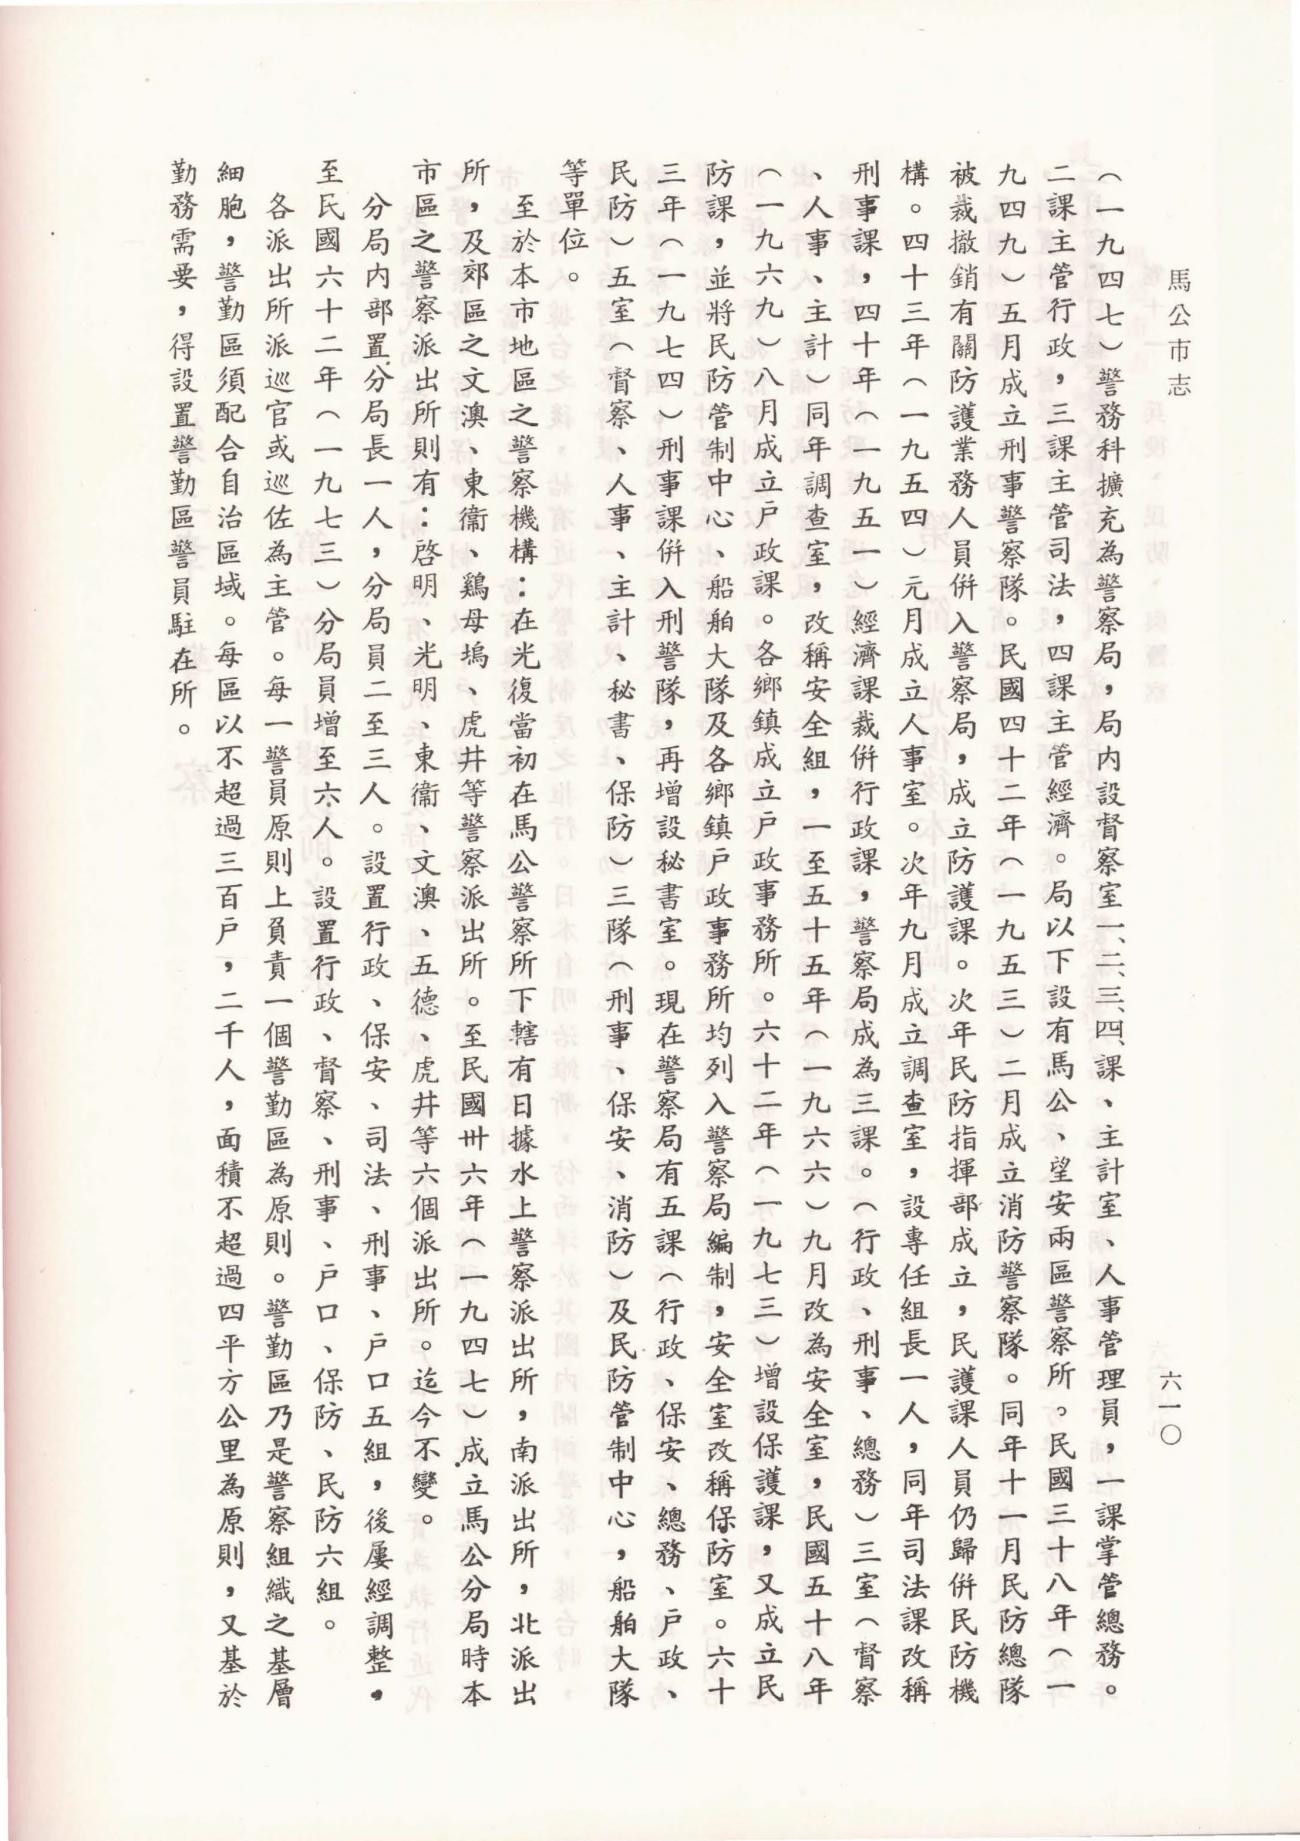 馬公市志
六一〇
（一九四七）警務科擴充為警察局，局內設督察室一、二、三、四、課、主計室、人事管理員，一課掌管總務。
二課主管行政，三課主管司法，四課主管經濟。局以下設有馬公、望安兩區警察所。民國三十八年（一
九四九）五月成立刑事警察隊。民國四十二年（一九五三）二月成立消防警察隊。同年十一月民防總隊
被裁撤銷有關防護業務人員併入警察局，成立防護課。次年民防指揮部成立，民護課人員仍歸併民防機
構。四十三年（一九五四）元月成立人事室。次年九月成立調查室，設專任組長一人，同年司法課改稱
刑事課，四十年（一九五一）經濟課裁併行政課，警察局成為三課。（行政、刑事、總務）三室（督察
、人事、主計）同年調查室，改稱安全組，一至五十五年（一九六六）九月改為安全室，民國五十八年
（一九六九）八月成立戶政課。各鄉鎮成立戶政事務所。六十二年（一九七三）增設保護課，又成立民
防課，並將民防管制中心、船舶大隊及各鄉鎮戶政事務所均列入警察局編制，安全室改稱保防室。六十
三年（一九七四）刑事課併入刑警隊，再增設秘書室。現在警察局有五課（行政、保安、總務、戶政、
民防）五室（督察、人事、主計、秘書、保防）三隊（刑事、保安、消防）及民防管制中心，船舶大隊
等單位。
至於本市地區之警察機構：在光復當初在馬公警察所下轄有日據水上警察派出所，南派出所，北派出
所，及郊區之文澳、東衞、鷄母塢、虎井等警察派出所。至民國卅六年（一九四七）成立馬公分局時本
市區之警察派出所則有：啓明、光明、東衞、文澳、五德、虎井等六個派出所。迄今不變。
分局內部置分局長一人，分局員二至三人。設置行政、保安、司法、刑事、戶口五組，後屢經調整，
至民國六十二年（一九七三）分局員增至六人。設置行政、督察、刑事、戶口、保防、民防六組。
各派出所派巡官或巡佐為主管。每一警員原則上負責一個警勤區為原則。警勤區乃是警察組織之基層
細胞，警勤區須配合自治區域。每區以不超過三百戶，二千人，面積不超過四平方公里為原則，又基於
勤務需要，得設置警勤區警員駐在所。